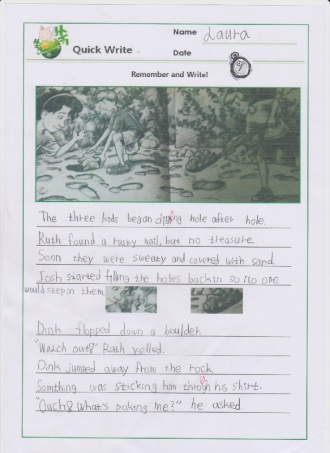 Name Laura
Quick Write
Date 9
Remember and Write!
The three kids began diging hole after hole.
Ruth found a rusty nail, but no treasure.
Soon they were sweaty and covered with sand.
Josh started filling the holes back in so no one
would step in them
Dink flopped down a boulder.
"Watch out!" Ruth yelled.
Dink jumped away from the rock
Somthing was sticking him through his shirt.
"Ouch! What's poking me?" he asked.